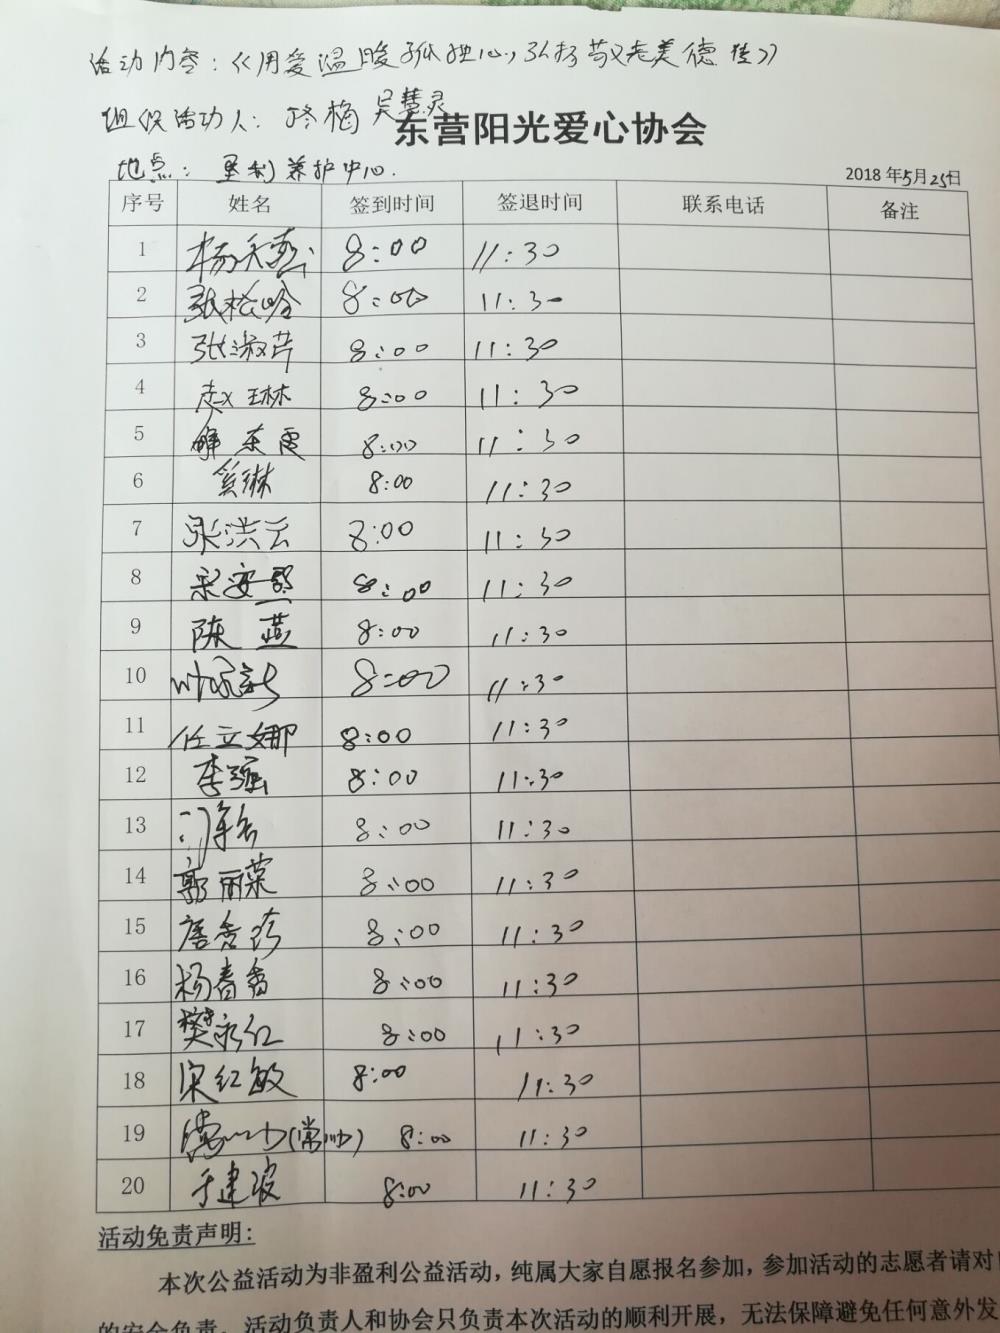 活动内容:《用爱温暖孤独心,弘扬敬老美德 》
组织活动人: 佟梅 吴慧灵
东营阳光爱心协会
地点: 垦利养护中心.
2018年5月25日
序号 姓名 签到时间 签退时间 联系电话 备注
1 8:00 11:30
2 8:00 11:30
3 张淑芹 8:00 11:30
4 赵琳 8:00 11:30
5 解东霞 8:00 11:30
6 8:00 11:30
7 张洪云 8:00 11:30
8 8:00 11:30
9 陈燕 8:00 11:30
10 8:00 11:30
11 任立娜 8:00 11:30
12 李强 8:00 11:30
13 8:00 11:30
14 郭丽荣 8:00 11:30
15 唐秀珍 8:00 11:30
16 杨春香 8:00 11:30
17 樊永红 8:00 11:30
18 宋红敏 8:00 11:30
19 8:00 11:30
20 于建波 8:00 11:30
活动免责声明:
本次公益活动为非盈利公益活动,纯属大家自愿报名参加,参加活动的志愿者请对
的安全负责。活动负责人和协会只负责本次活动的顺利开展,无法保障避免任何意外发